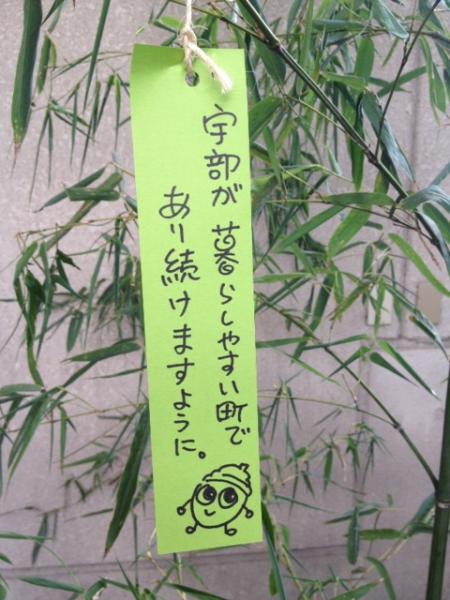 宇部が暮らしやすい町で
あり続けますように。